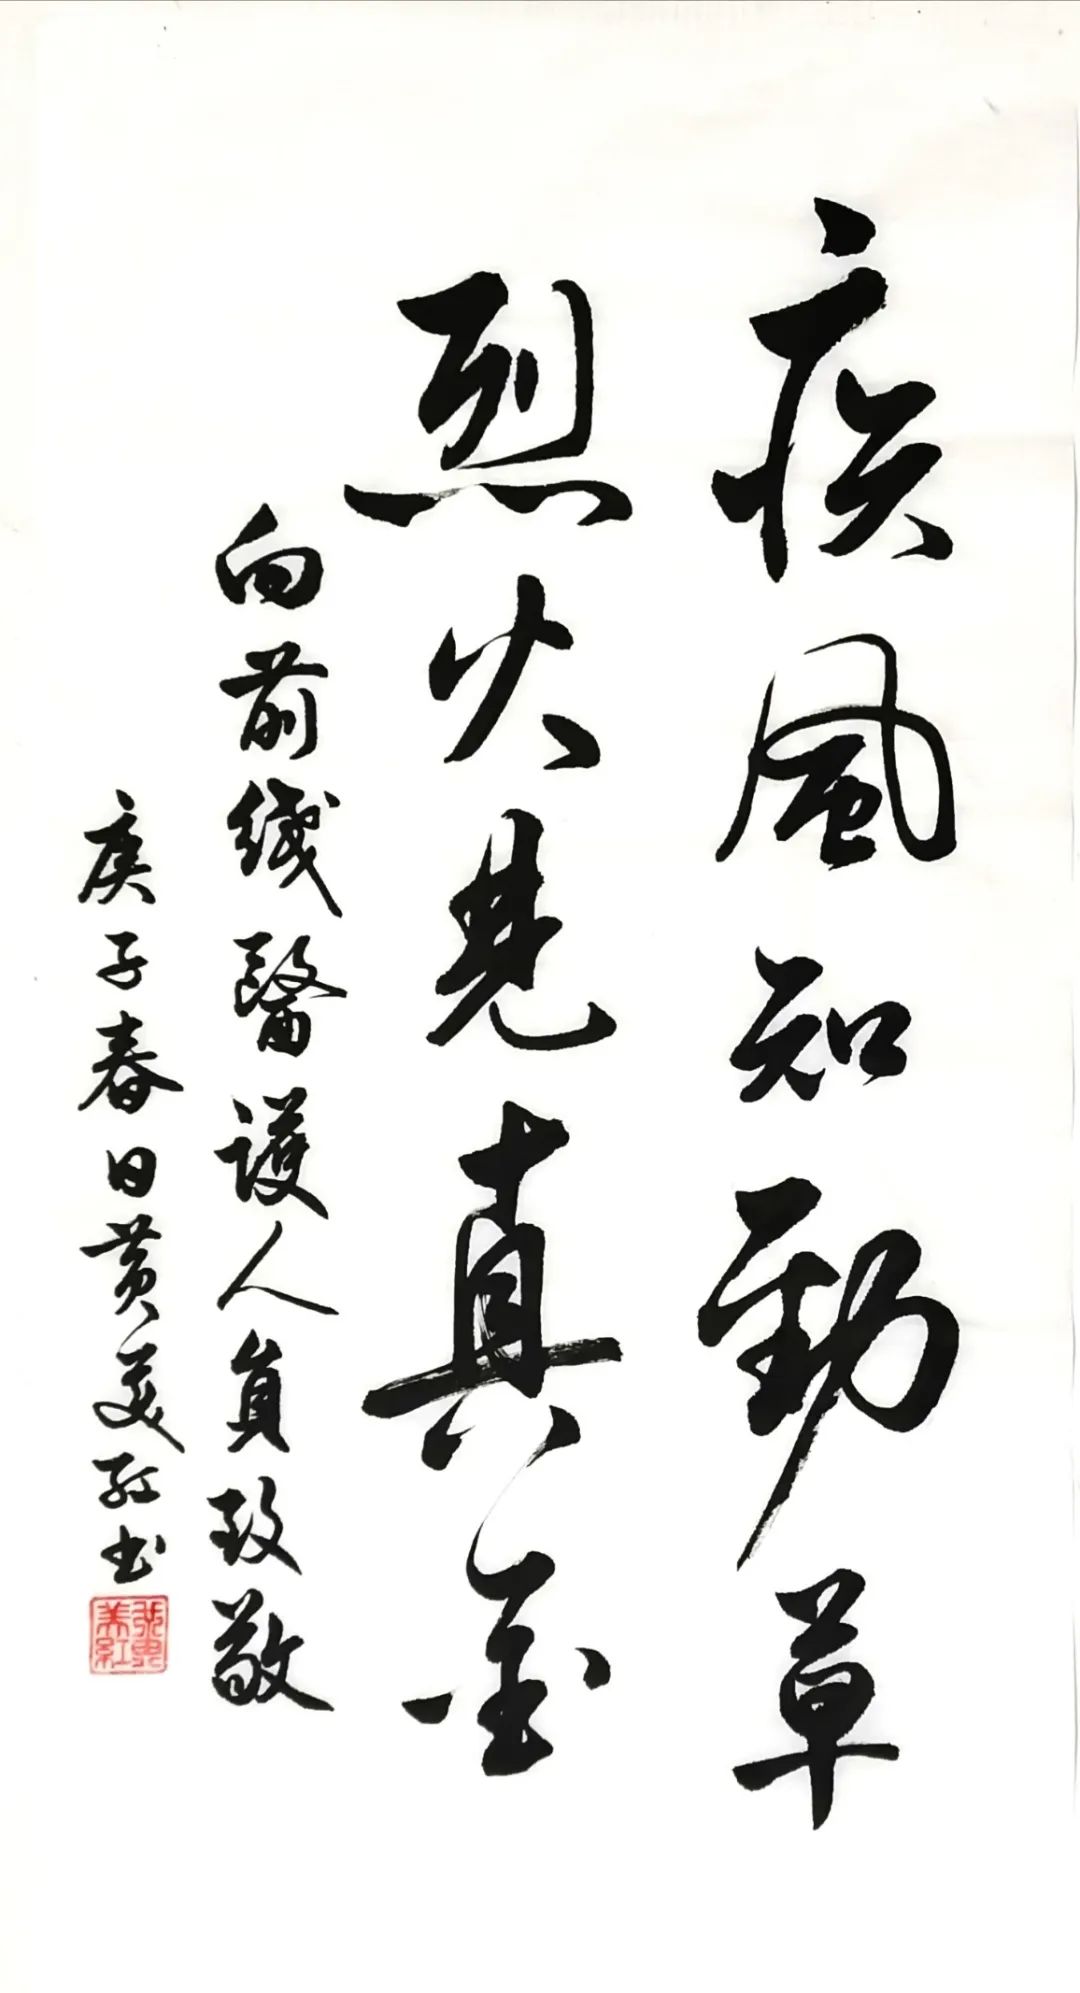 疾風知勁草
烈火見真金
向前线醫護人員致敬
庚子春日黄美红书